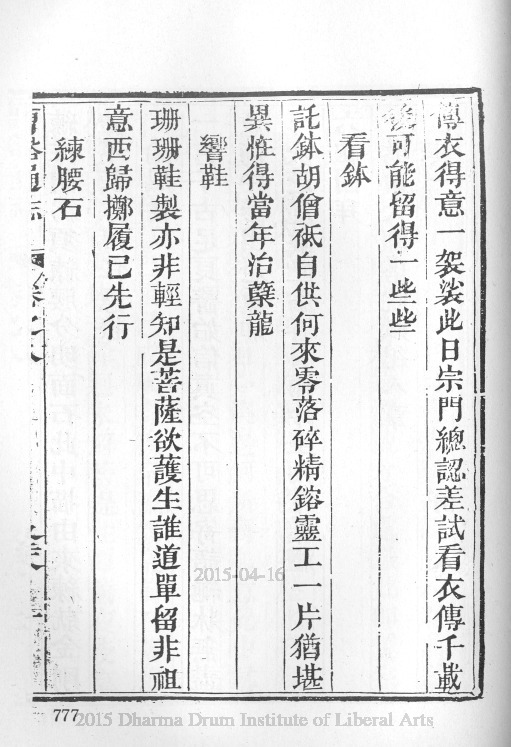 傳衣得意一袈裟此日宗門總認差試看衣傳千載
可能留得一些些
看鉢
託鉢胡僧祗自供何來零落碎精鎔靈工一片猶堪
異恠得當年治孽龍
響鞋
珊珊鞋製亦非輕知是菩薩欲護生誰道單留非祖
意西歸擲履已先行
練腰石
曹溪通志
卷之八
777
2015-04-16
2015 Dharma Drum Institute of Liberal Arts